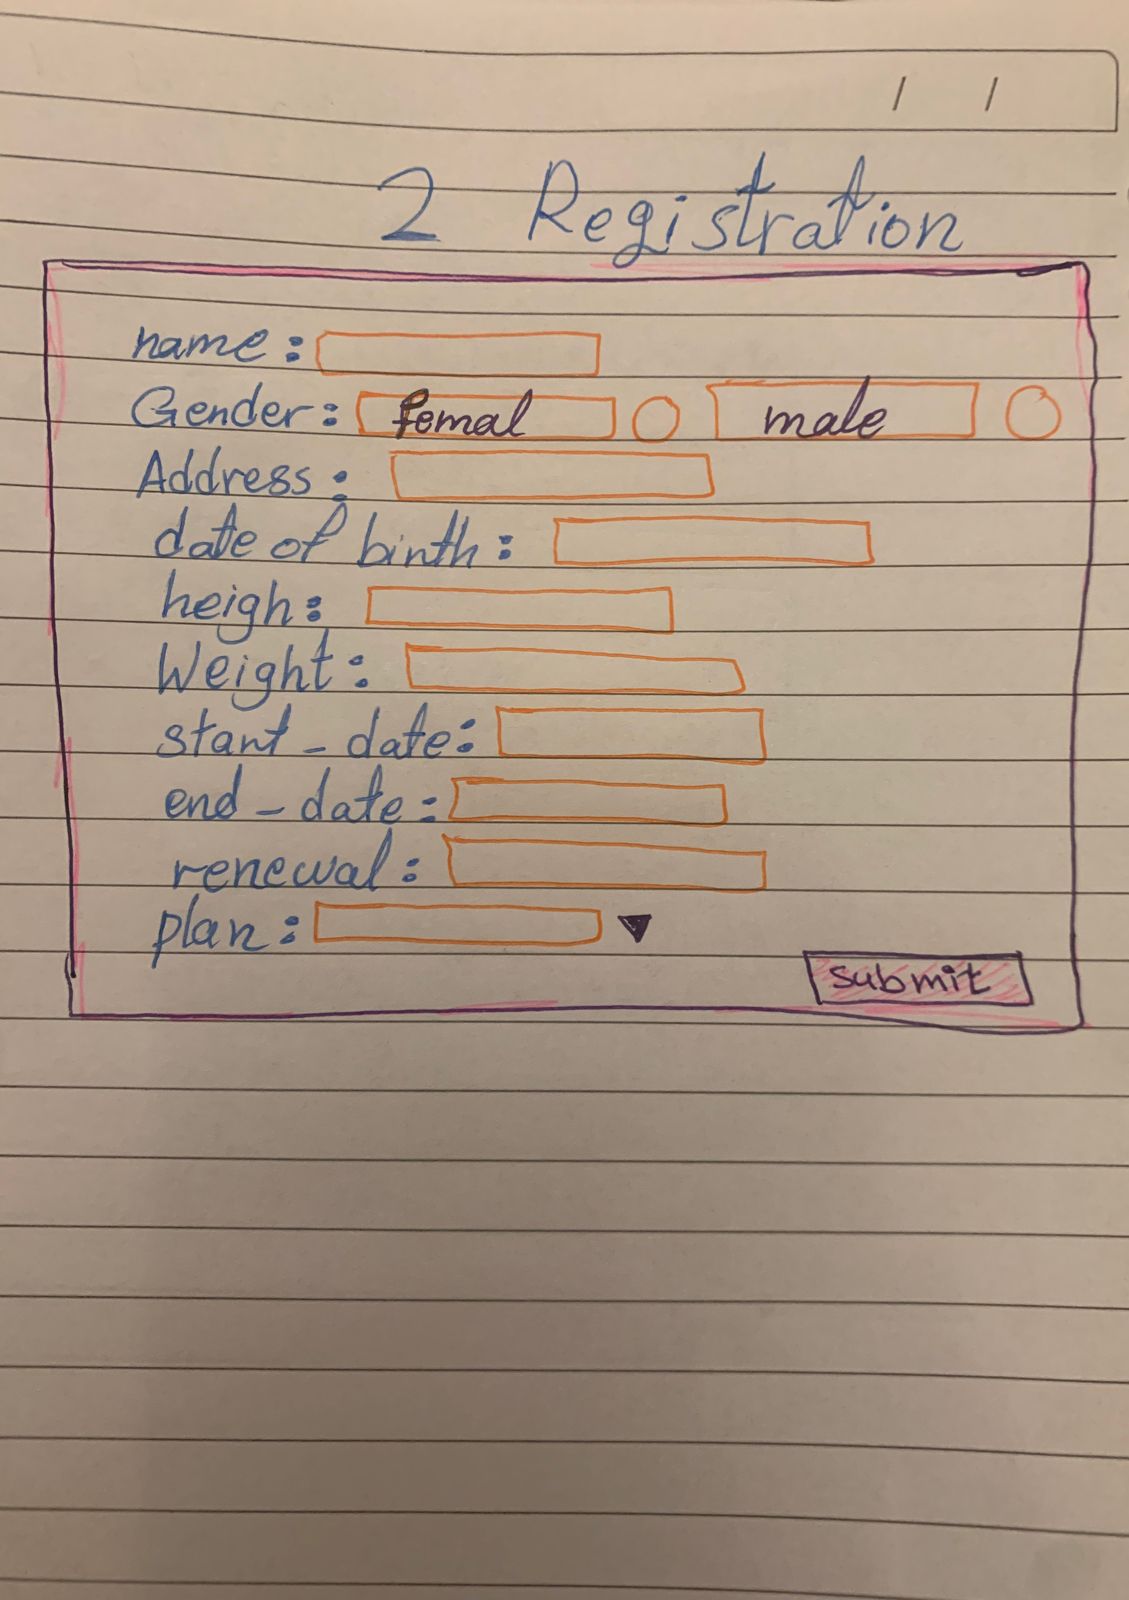 2 Registration
name:
Gender: femal male
Address:
date of birth:
heigh:
Weight:
start_date:
end_date:
renewal:
plan:
submit